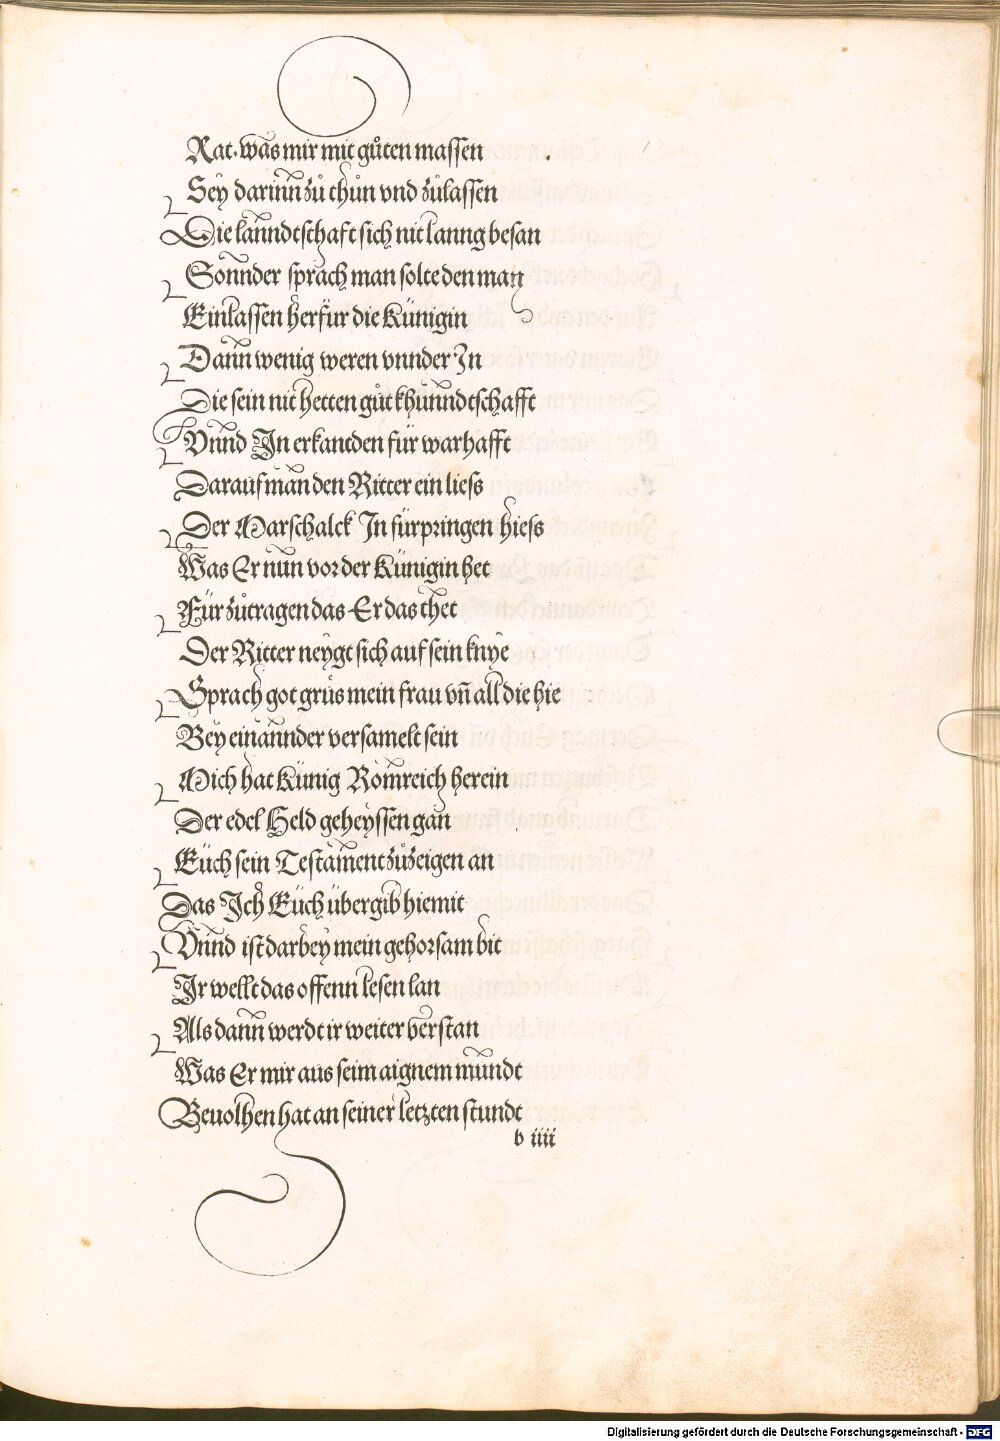 Rat. was mir mit gůten massen
Sey darinn zů thůn vnd zůlassen
Die lanndtschaft sich nit lanng besan
Sonnder sprach man solte den man
Einlassen herfür die Künigin
Dann wenig weren vnnder In
Die sein nit hetten gůt khunndtschafft
Vnnd In erkantden für warhafft
Darauf man den Ritter ein liess
Der Marschalck In fürpringen hiess
Was Er nun vor der Künigin het
Für zůtragen das Er das thet
Der Ritter neygt sich auf sein knye
Sprach got grůs mein frau vñ all die hie
Bey einannder versamelt sein
Mich hat Künig Romreich herein
Der edel Held geheyssen gan
Eüch sein Testament zůzeigen an
Das Ich Eüch übergib hiemit
Vnnd ist darbey mein gehorsam bit
Ir wellt das offenn lesen lan
Als dann werdt ir weiter verstan
Was Er mir aus seim aignem mundt
Beuolhen hat an seiner letzten stundt
v iiii
Digitalisierung gefördert durch die Deutsche Forschungsgemeinschaft - DFG